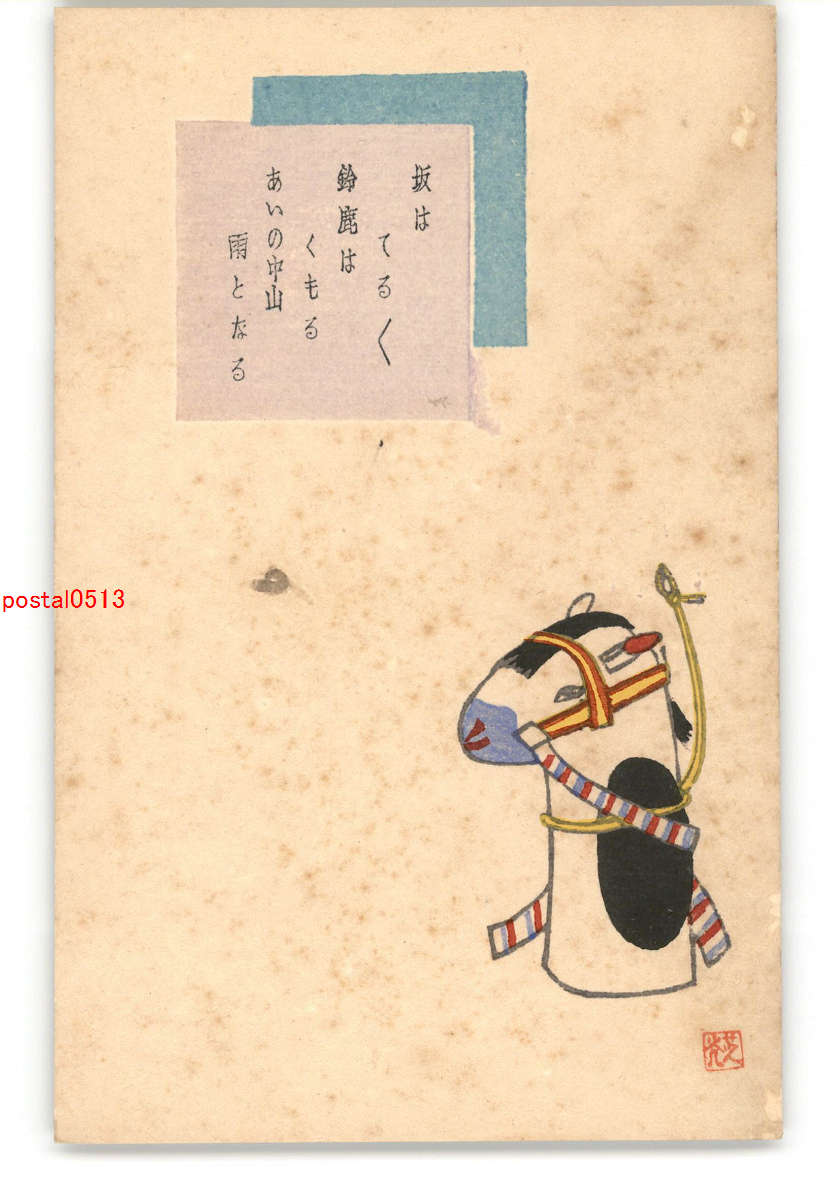 坂は
てる〱
鈴鹿は
くもる
あいの中山
雨となる
postal0513